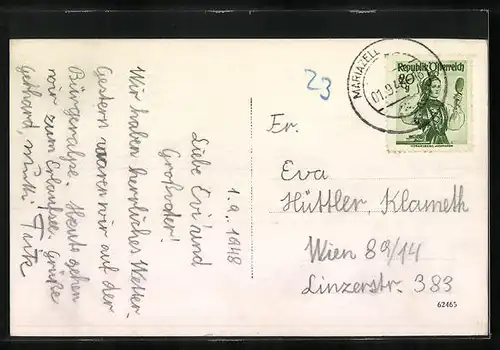 1.9..1948
Liebe Evi und
Großvater!
Wir haben herrliches Wetter.
Gestern waren wir auf der
Bürgeralpe. Heute gehen
wir zum Erlaufsee. Grüße
Gerhard, Mutti,
23
MARIAZELL
01.9.48
Republik Österreich
Er.
Eva
Hüttler, Klameth
Wien 89/14
Linzerstr. 383
62465